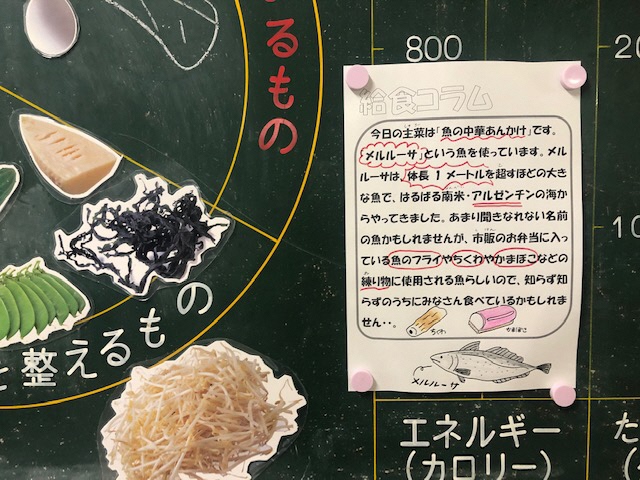 るもの
を整えるもの
800
20
10
エネルギー
(カロリー)
た
(
給食コラム
今日の主菜は「魚の中華あんかけ」です。
「メルルーサ」という魚を使っています。メル
ルーサは、体長1メートルを超すほどの大き
な魚で、はるばる南米・アルゼンチンの海か
らやってきました。あまり聞きなれない名前
の魚かもしれませんが、市販のお弁当に入っ
ている魚のフライやちくわやかまぼこなどの
練り物に使用される魚らしいので、知らず知
らずのうちにみなさん食べているかもしれま
せん・・。
ちくわ
かまぼこ
メルルーサ